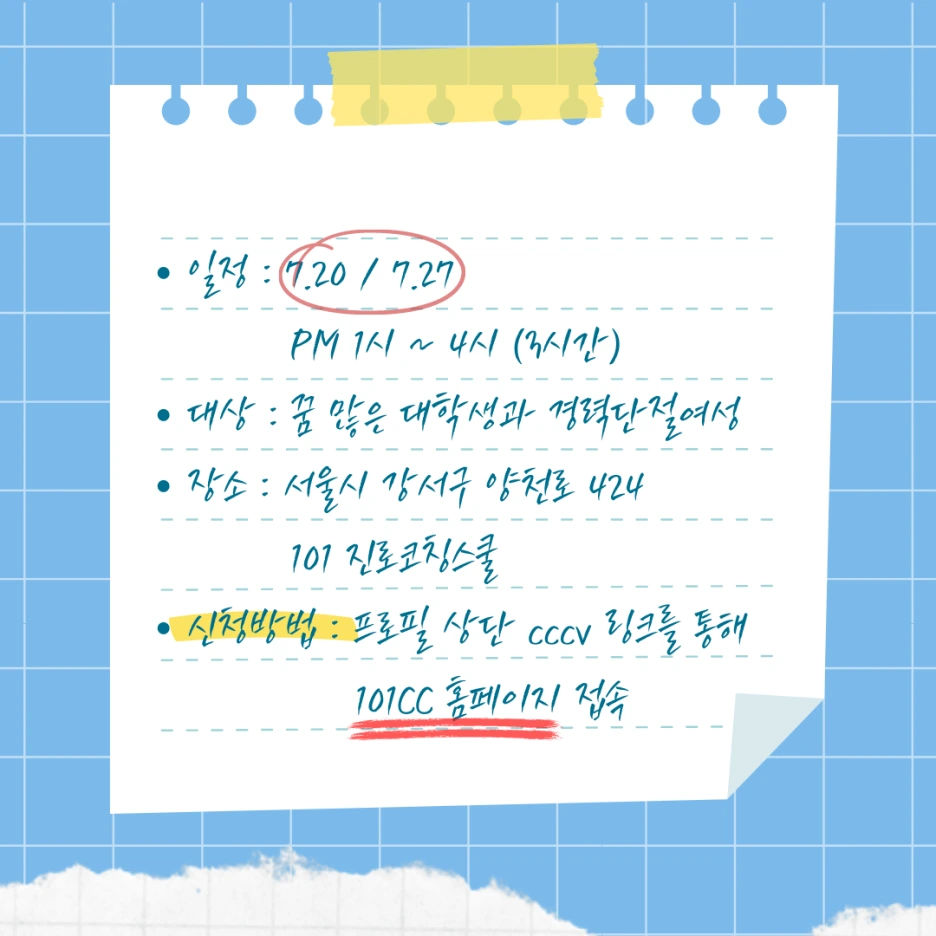 • 일정 : 7.20 / 7.27
PM 1시 ~ 4시 (3시간)
• 대상 : 꿈 많은 대학생과 경력단절여성
• 장소 : 서울시 강서구 양천로 424
101 진로코칭스쿨
• 신청방법 : 프로필 상단 cccv 링크를 통해
101CC 홈페이지 접속